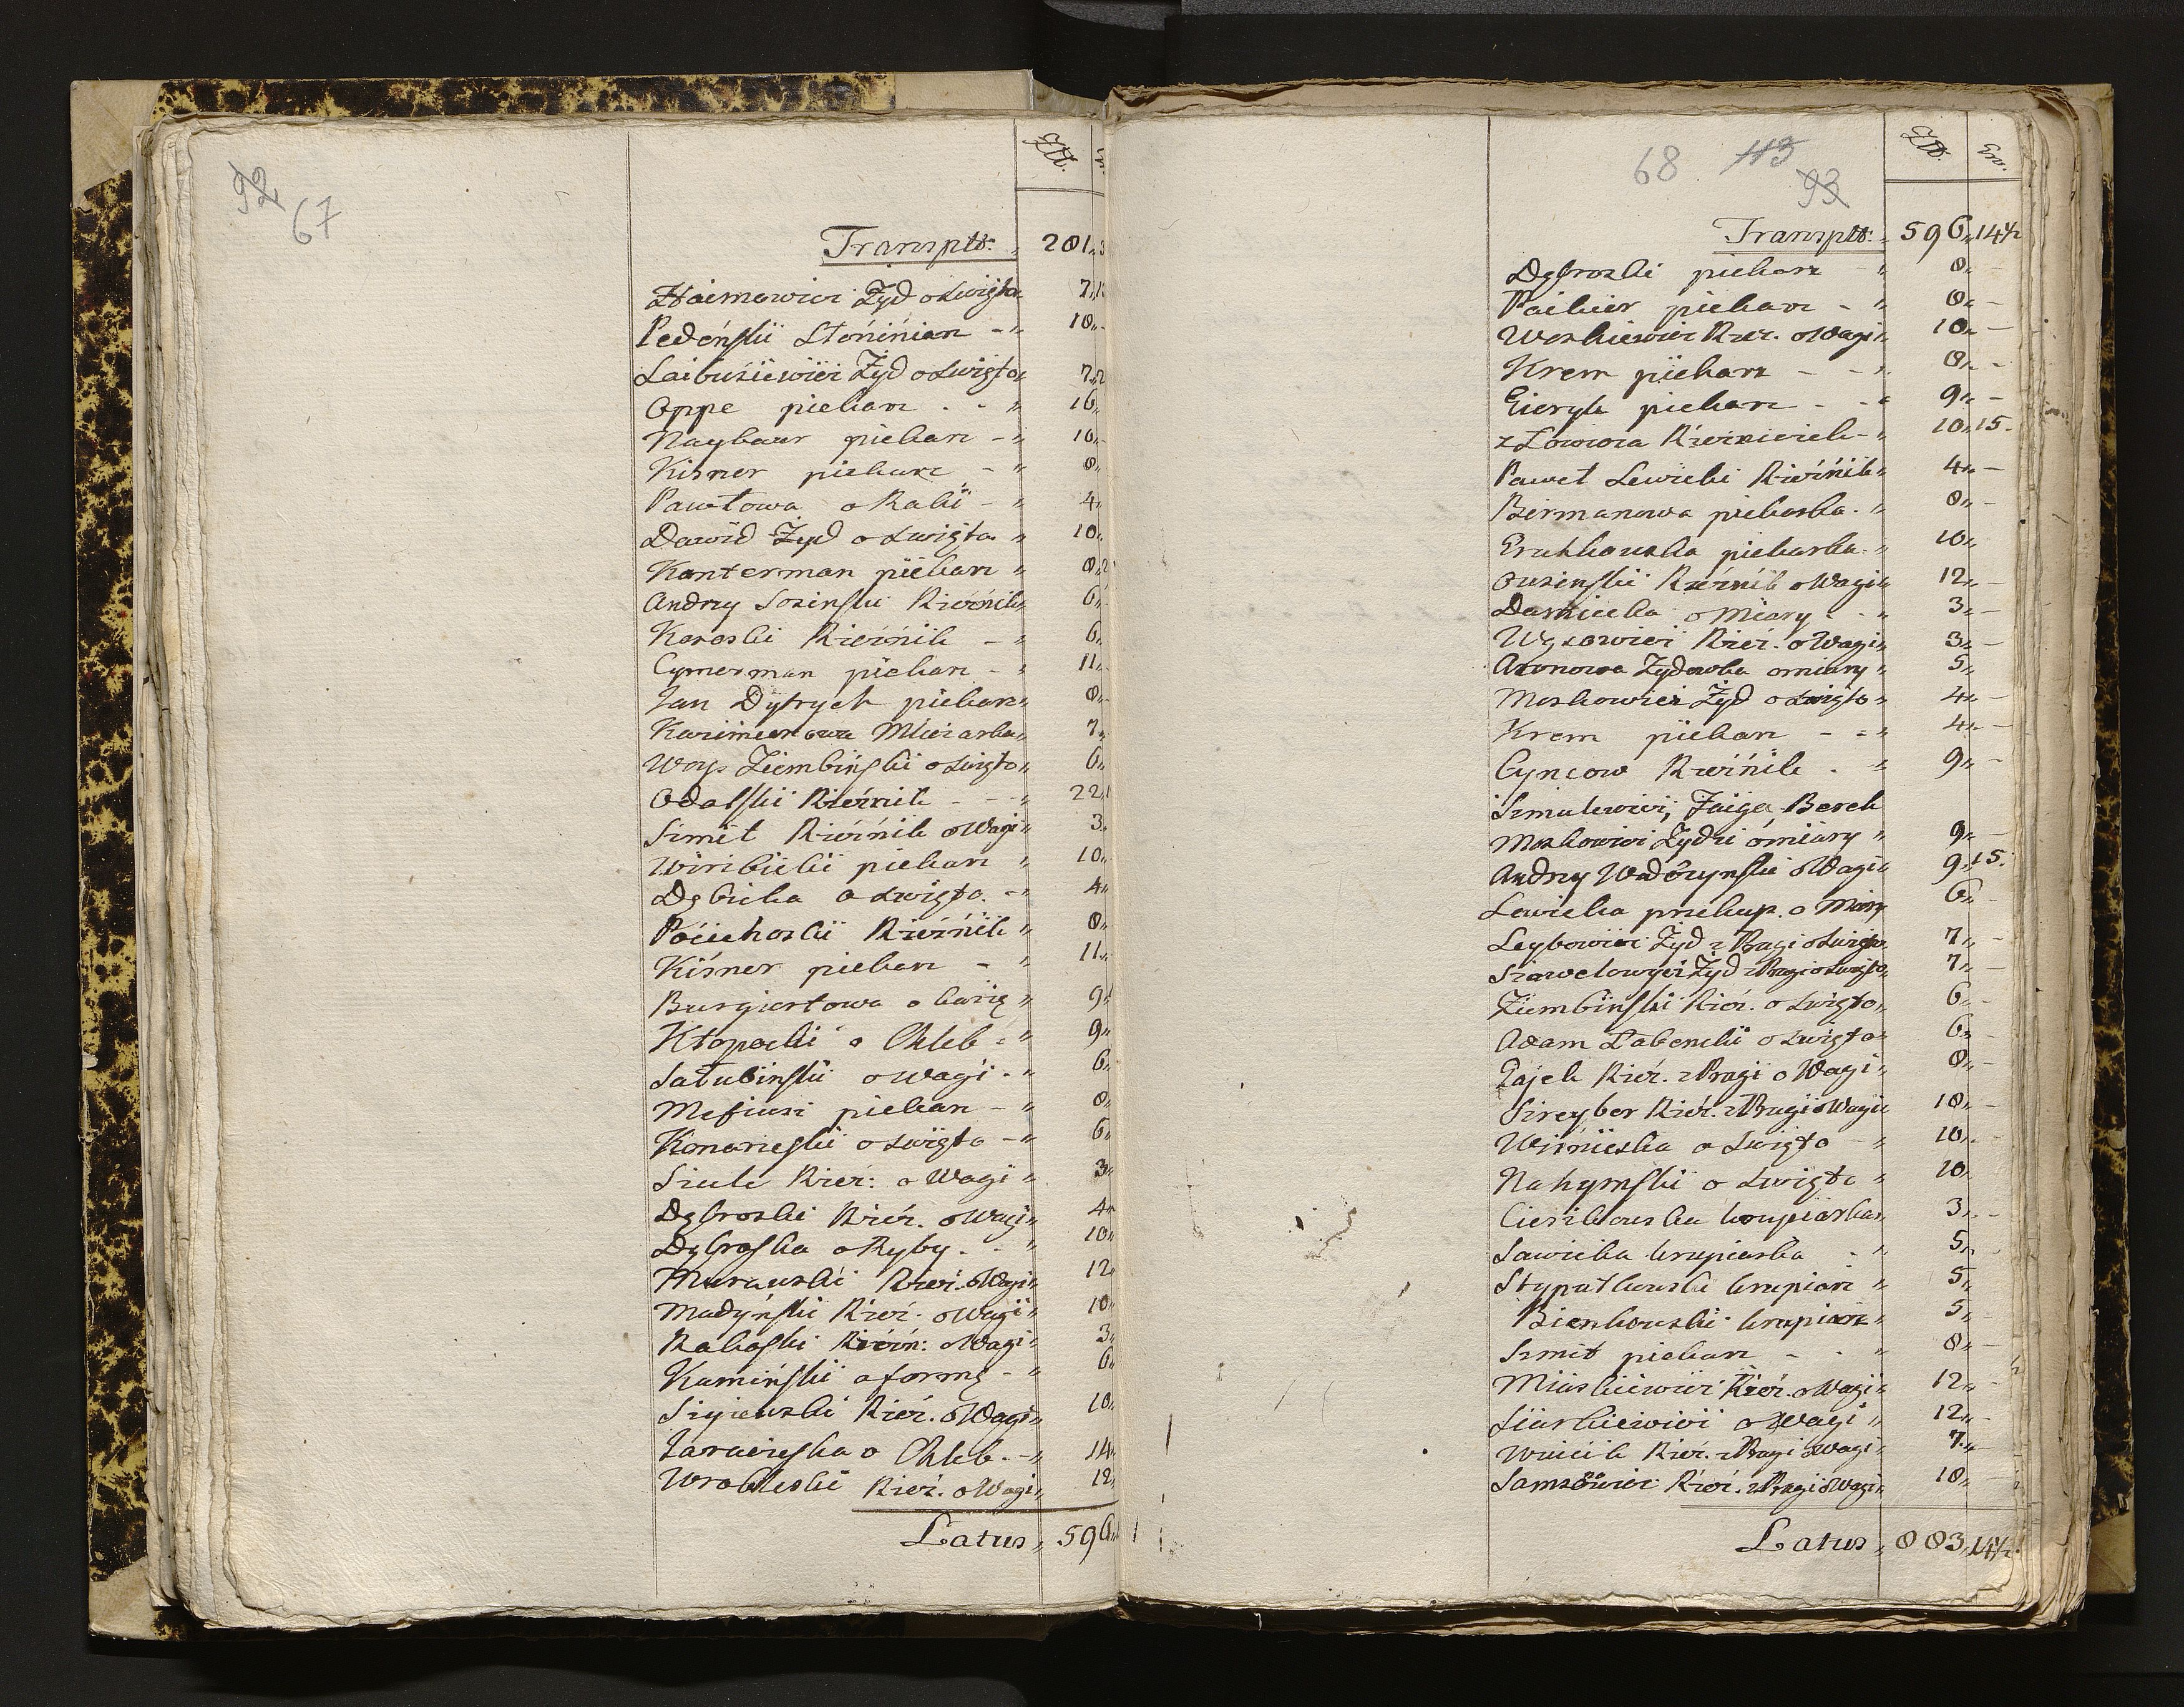 92 67
Złt. gr.
Transptt: 201 3
Haimowicz Żyd o Swięto 7
Pedeńskii Stoninian 10
Laibusiewicz Żyd o Swięto 7
Oppe piekarz 16
Naybaur piekarz 10
Kisner piekarz 8
Pawłowa o Raki 4
Dawid Żyd o Swięto 10
Kanterman piekarz 8
Andrzy Sosinski Rzeźnik 6
Karoski Rzeźnik 6
Cymerman piekarz 11
Jan Dytrych piekarz 8
Kazimierzowa Mliczarka 7
Woyc Ziembiński o Swięto 6
Odalski Rzeźnik 22
Szmit Rzeźnik o Wagi 3
Wirzbicki piekarz 10
Dębicka o Swięto 4
Pociechoski Rzeźnik 8
Kisner piekarz 11
Burgiartowa o Kaszę 9
Kłopocki o Chleb 9
Sałubinski o Wagi 6
Mefiusz piekarz 8
Konarzeski o Swięto 6
Szulc Rzeź: o Wagi 3
Dąbroski Rzeź. o Wagi 4
Dąbroska o Ryby 10
Murauski Rzeź. o Wagi 12
Madyński Rzeź. o Wagi 10
Rakoski Rzeźn: o Wagi 3
Kamiński o formę 6
Szyieuski Rzeź. o Wagi 10
Zaraieska o Chleb 14
Wrobleski Rzeź. o Wagi 12
Latus 596
68 113
93
Złt. Gr.
Transptt: 596 14½
Dąbroski piekarz 8
Paikier piekarz 8
Woskiewicz Rzeź. o Wagi 10
Krem piekarz 8
Gieryk piekarz 9
z Łowicza Rzeznicich 10 15
Paweł Lewicki Rzeźnik 4
Birmanowa piekarka 8
Gruchkouska piekarka 10
Ousinski Rzeźnik o Wagi 12
Darnicka o Miary 3
Wysowicz Rzeź. o Wagi 3
Aronowa Żydowka o miary 5
Moskowicz Żyd o Swięto 4
Krem piekarz 4
Cyncow Rzeźnik 9
Szmulewicz, Faiga Berek
Moskowicz Żydzi o miary 9
Andrzy Wudczynski o Wagi 9 15
Lewicka przekup. o Miary 6
Leybowicz Żyd z Pragi o Swięto 7
Szawelowycz Żyd z Pragi o Swięto 7
Ziembinski Rzeź. o Swięto 6
Adam Łabencki o Swięto 6
Zajek Rzeź. z Pragi o Wagi 8
Szreyber Rzeź. z Pragi o Wagi 10
Wiśnieska o Swięto 10
Nahymski o Swięto 10
Cieszkouska krupiarka 3
Sawicka krupiarka 5
Stypałkouski krupiarz 5
Bienkouski krupiarz 5
Szmit piekarz 8
Miaskiewicz Rzeź. o Wagi 12
Siaskiewicz o Wagi 12
Wuicik Rzeź. z Pragi o Wagi 7
Samsowicz Rzeź. z Pragi o Wagi 10
Latus 883 14½